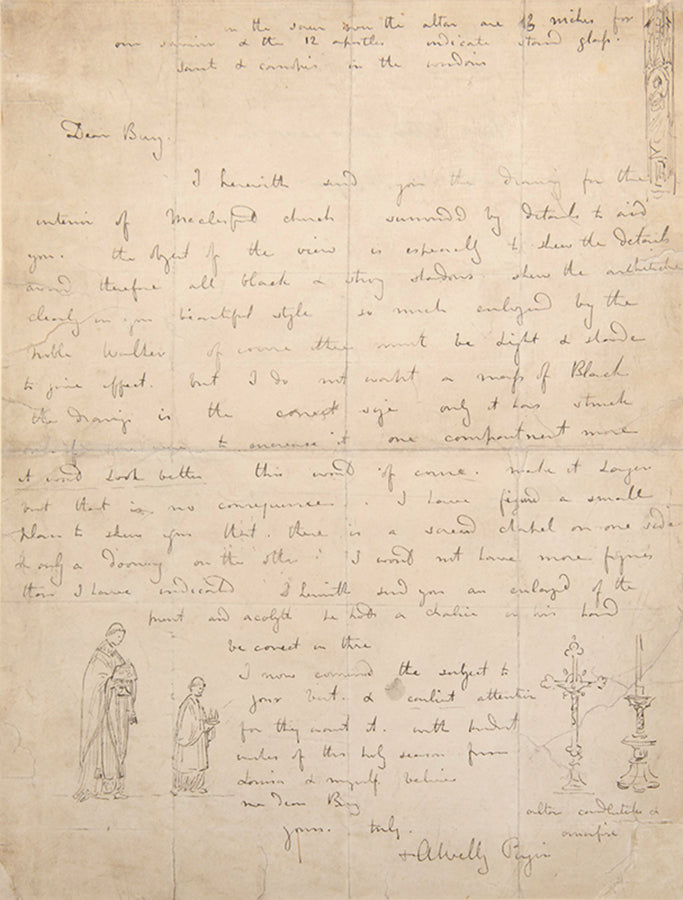 in the screen over the altar are 13 niches for
our saviour & the 12 apostles indicate staind glass.
saint & canopies in the windows
Dear Bury.
I herewith send you the drawing for the
interior of Macclesfield church surrounded by details to aid
you. the object of the view is especially to shew the details
avoid therefore all black & strong shadows. shew the architecture
clearly in your beautiful style so much enlogized by the
noble Weale of course there must be Light & shade
to give effect. but I do not want a mass of Black
the drawing is the correct size only it has struck
to increase it one compartment more
it would look better this would of course. make it Larger
but that is no consequence I have figured a small
plan to shew you that. there is a screend chapel on one side
& only a doorway on the other. I would not have more figures
than I have indicated I herewith send you an enlarged of the
priest and acolyte he holds a chalice in his hand
be correct in this
I now commend the subject to
your best. & earliest attention
for they want it. with kindest
wishes of this holy season from
Louisa & myself believe
me Dear Bury
altar candlesticks &
crucifix
yours. truly.
+ AWelby Pugin